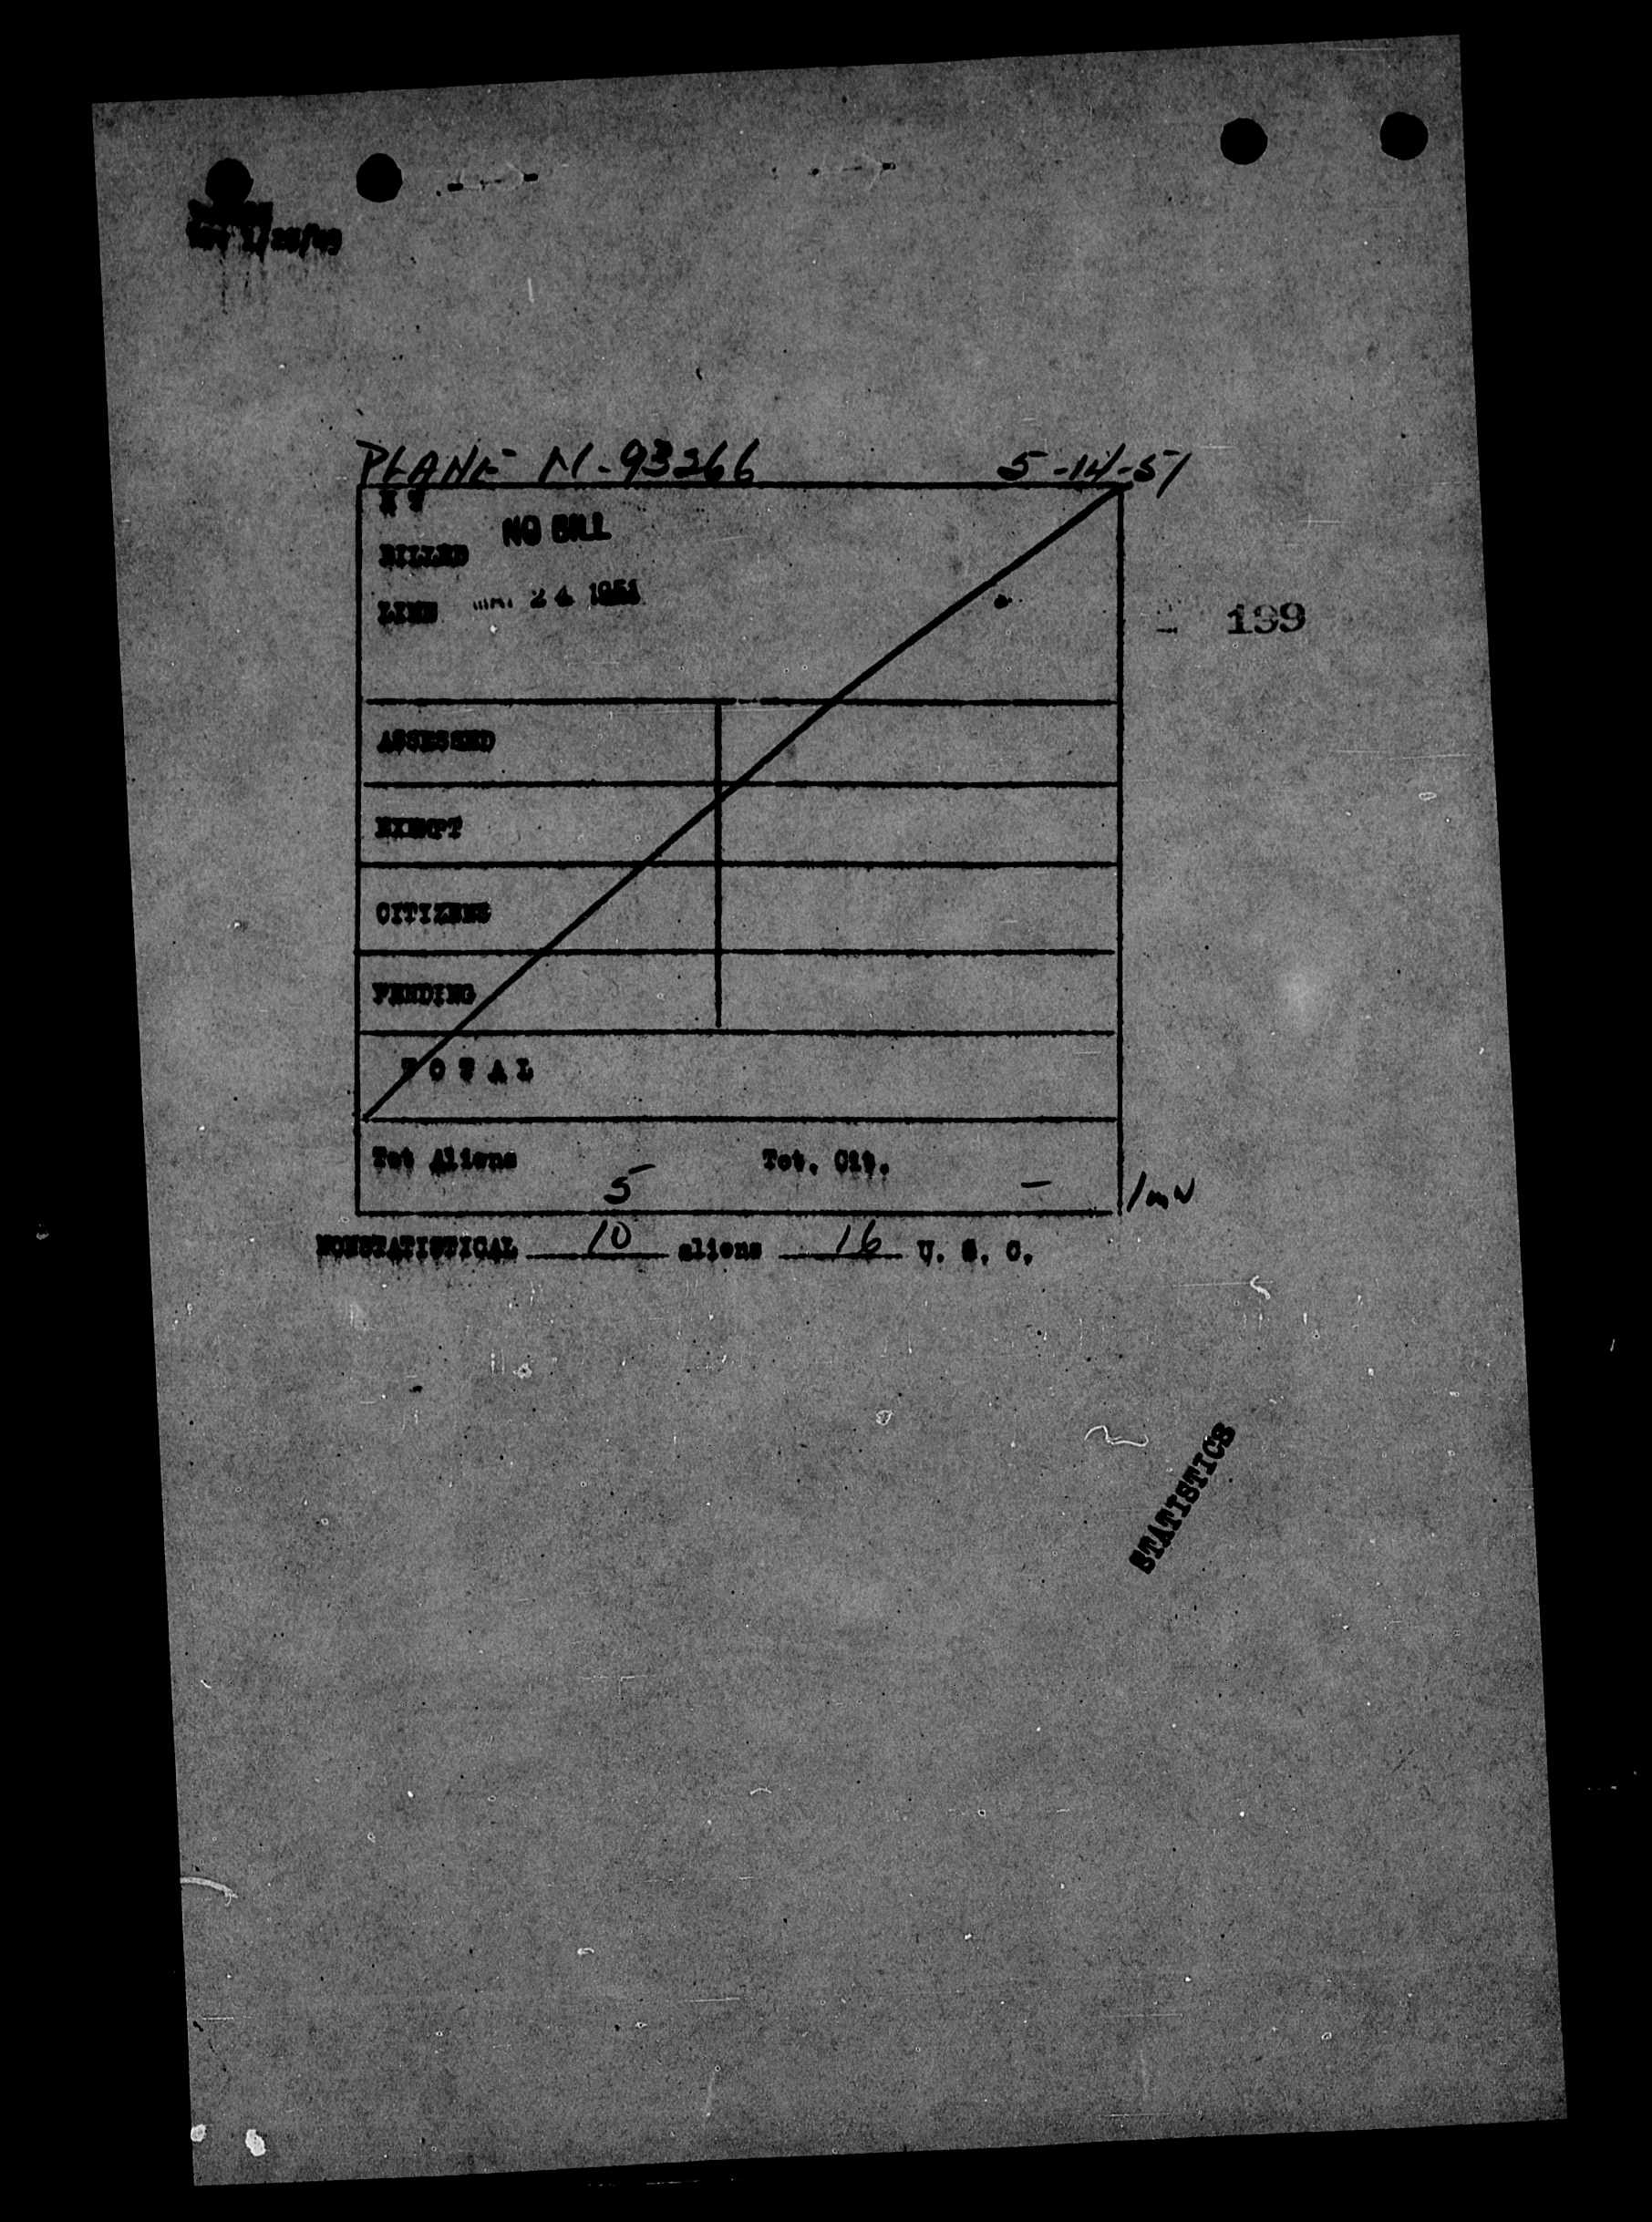 Rev 1/25/49
PLANE N-93266 5-14-51
N Y
BILLED NO BILL
LINE MAY 24 1951
199
ASSESSED
EXEMPT
CITIZENS
PENDING
TOTAL
Tot Aliens 5 Tot. Cit. -
NONSTATISTICAL 10 aliens 16 U. S. C.
STATISTICS